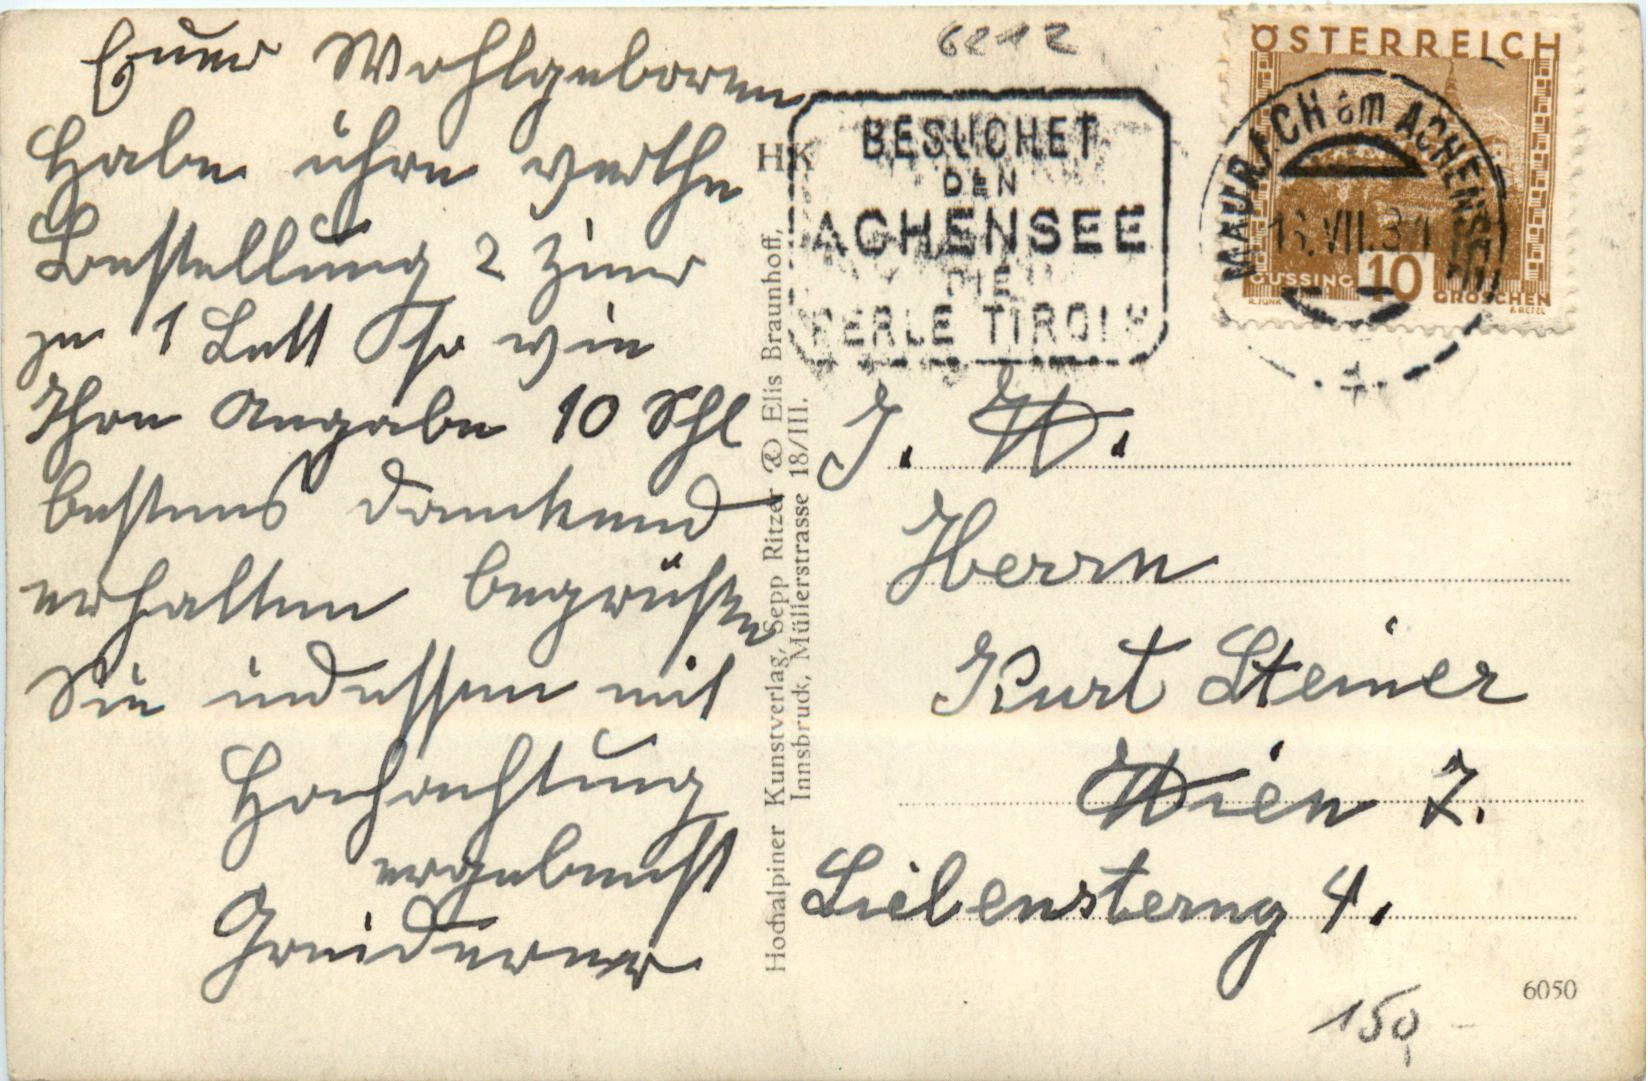 Euer Wohlgeboren
Habe ihre werthe
Bestellung 2 Zimer
zu 1 Bett so wie
Ihre Angabe 10 Schl
bestens dankend
erhalten begrüße
Sie indessen mit
Hochachtung
ergebenst
6212
HK
BESUCHET
DEN
ACHENSEE
DIE
PERLE TIROLS
ÖSTERREICH
GÜSSING 10 GROSCHEN
MAURACH am ACHENSEE
VII.31
Hochalpiner Kunstverlag, Sepp Ritzer & Elis Braunhoff,
Innsbruck, Müllerstrasse 18/III.
J. W.
Herrn
Kurt Steiner
Wien 7.
Liebensterng 4.
6050
150,-